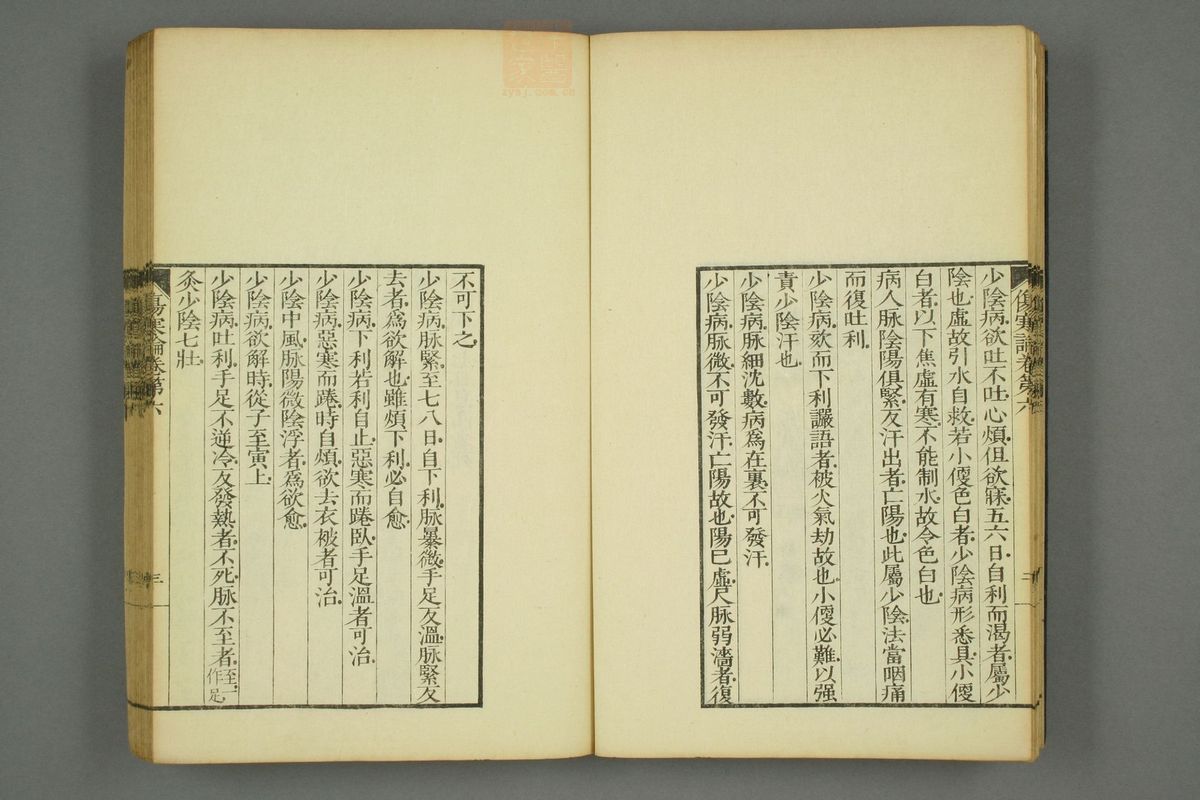 傷寒論卷第六
二
少陰病欲吐不吐心煩但欲寐五六日自利而渴者屬少
陰也虛故引水自救若小便色白者少陰病形悉具小便
白者以下焦虛有寒不能制水故令色白也
病人脉陰陽俱緊反汗出者亡陽也此屬少陰法當咽痛
而復吐利
少陰病欬而下利讝語者被火氣劫故也小便必難以强
責少陰汗也
少陰病脉細沈數病爲在裏不可發汗
少陰病脉微不可發汗亡陽故也陽已虛尺脉弱濇者復
不可下之
少陰病脉緊至七八日自下利脉暴微手足反溫脉緊反
去者爲欲解也雖煩下利必自愈
少陰病下利若利自止惡寒而踡臥手足溫者可治
少陰病惡寒而踡時自煩欲去衣被者可治
少陰中風脉陽微陰浮者爲欲愈
少陰病欲解時從子至寅上
少陰病吐利手足不逆冷反發熱者不死脉不至者至一作足
灸少陰七壯
傷寒論卷第六
三
zysj.com.cn